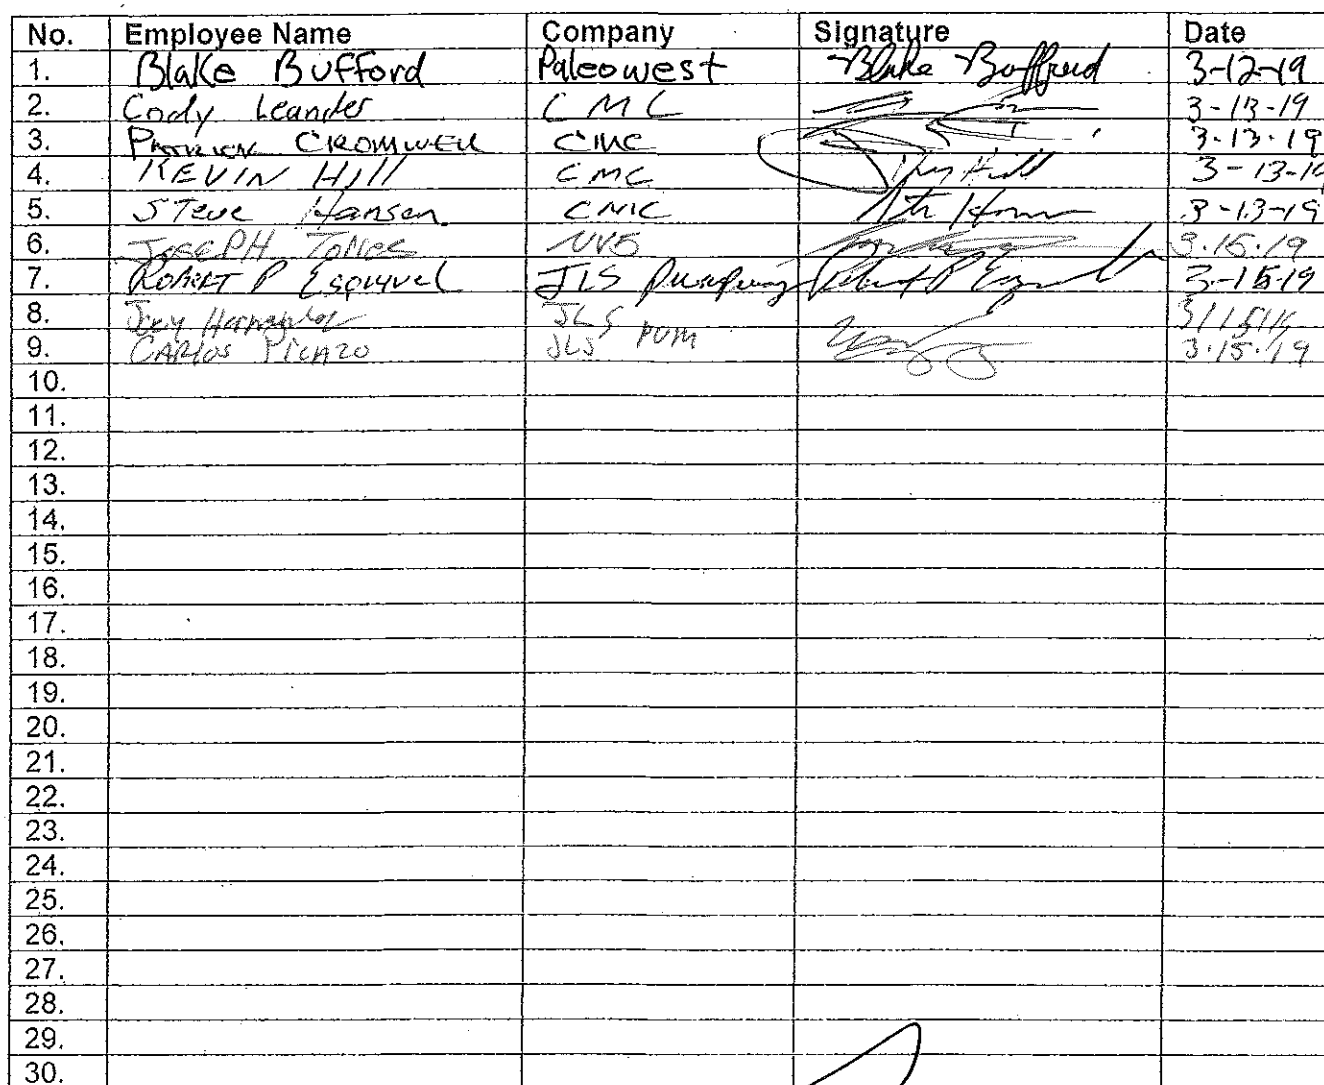 No. Employee Name Company Signature Date
1. Blake Bufford Paleowest Blake Bufford 3-12-19
2. Cody Leander CMC 3-13-19
3. Patrick CROMWELL CMC 3-13-19
4. KEVIN Hill CMC 3-13-19
5. STeve Hansen CMC 3-13-19
6. JOSEPH Torres NV5 3.15.19
7. RobERT P Esquivel JLS Pumping Robert P 3-15-19
8. Joey Hernandez JLS PUM
9. CARlos PicAzo JLS 3.15.19
10.
11.
12.
13.
14.
15.
16.
17.
18.
19.
20.
21.
22.
23.
24.
25.
26.
27.
28.
29.
30.